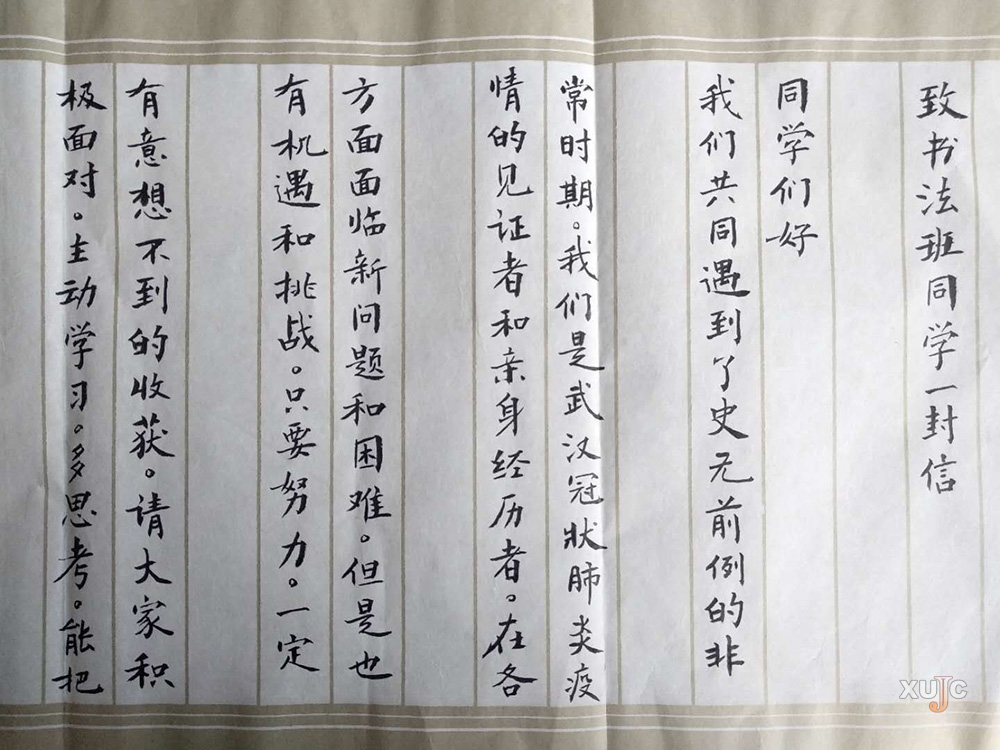 致书法班同学一封信
同学们好
我们共同遇到了史无前例的非
常时期。我们是武汉冠状肺炎疫
情的见证者和亲身经历者。在各
方面面临新问题和困难。但是也
有机遇和挑战。只要努力。一定
有意想不到的收获。请大家积
极面对。主动学习。多思考。能把
XUJC